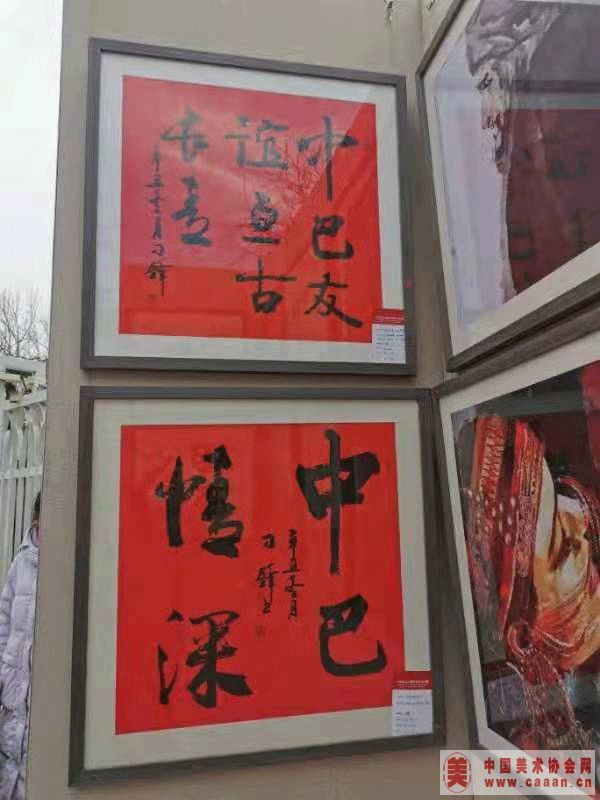 中巴友
谊亘古
长青
辛丑冬月刁鋒
中巴
辛丑冬月
刁鋒书
情深
中国美术协会网
www.caaan.cn
美